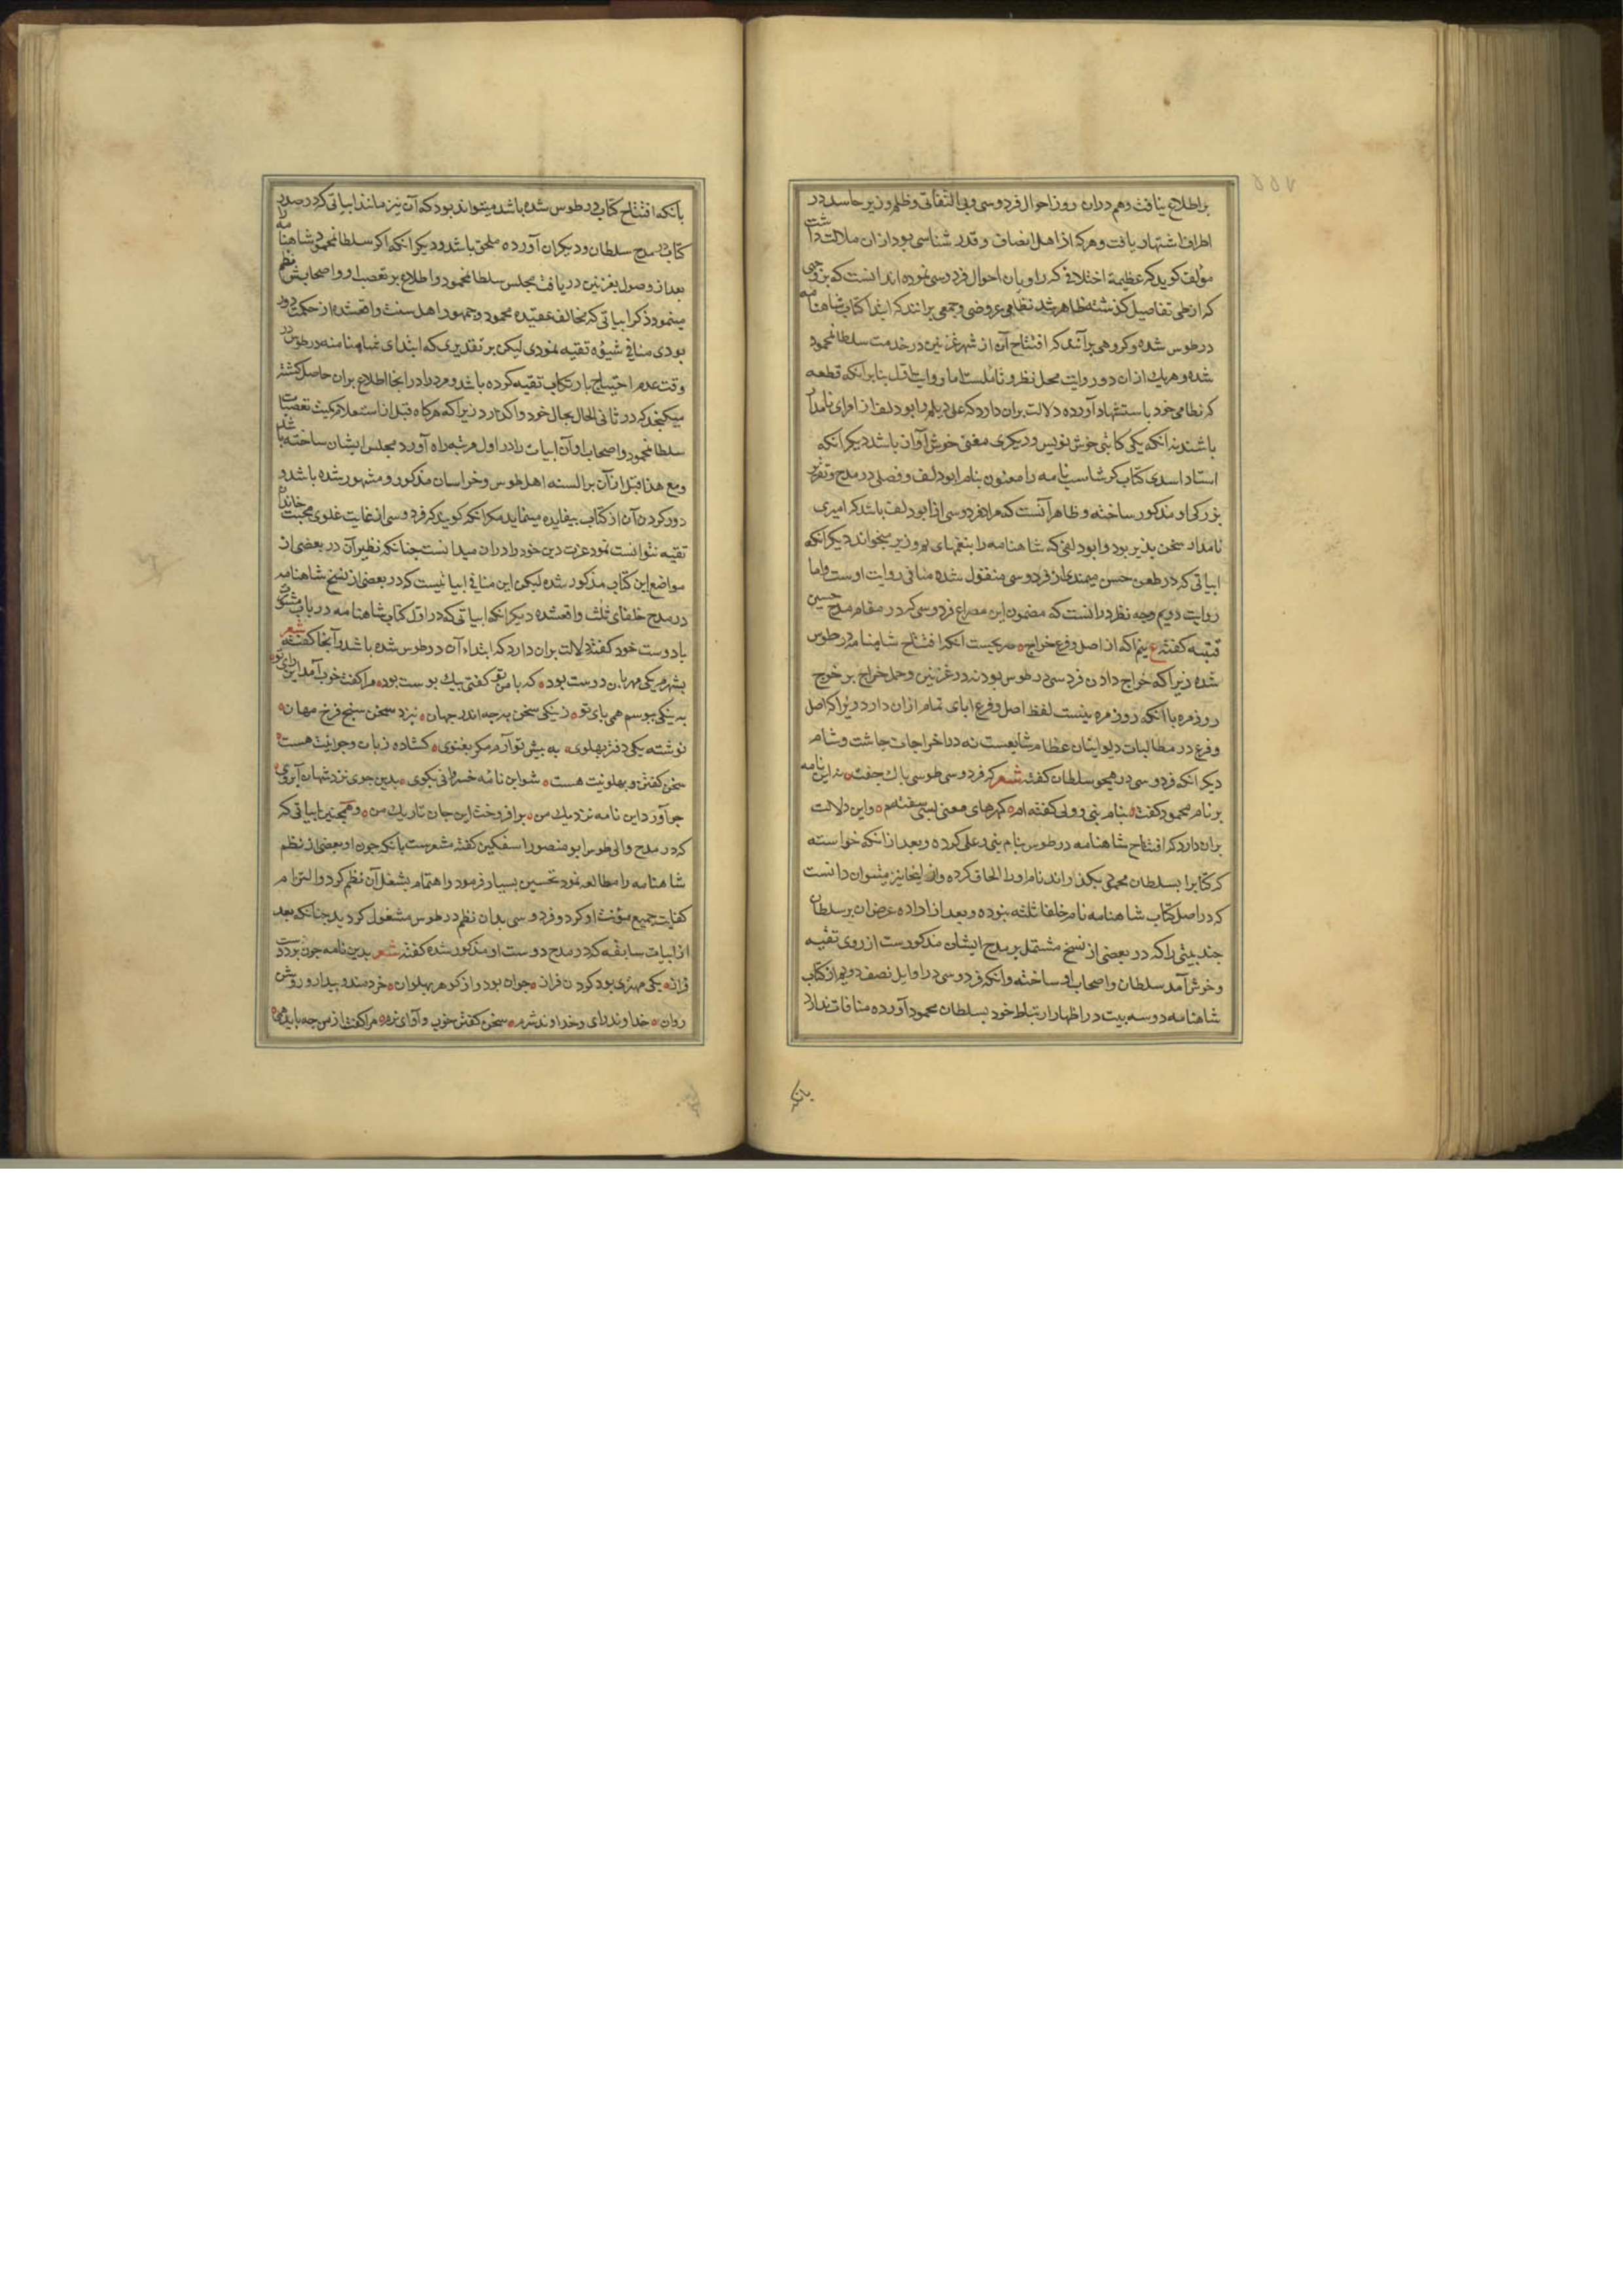 براطلاع نیافت وهم دران روز احوال فردوسی وبی التفاتی وظلم وزیر حاسد در
اطراف اشتهار یافت وهرکه از اهل انصاف وقدر شناسی بود ازان ملالت داشت
مؤلف کوید که عظیمهٔ اختلاف که راویان احوال فردوسی نموده اند انست که بروجهی
که ازطی تفاصیل کذشته ظاهر شد نظامی عروضی وجمعی برانند که ابتدا کتاب شاهنامه
در طوس شده وکروهی برآنند که افتتاح آن از شهر غزنین در خدمت سلطانمحمود
شده وهریك ازان دو روایت محل نظر وتاملست اما روایت اول بنابر آنکه قطعه
که نظامی خود باستشهاد آورده دلالت بران دارد که علی دیلم وابودلف از امرای نامدار
باشند نه آنکه یکی کاتبی خوش نویس ودیکری مغنی خوش آواز باشد دیکر انکه
استاد اسدی کتاب کرشاسب نامه را معنون بنام ابودلف وفصلی در مدح وتعریف
بزرکی او مذکور ساخته وظاهر آنست که مراد فردوسی از ابودلف باشد که امیری
نامدار سخن پذیر بود وابودلفی که شاهنامه را بنغمهای پیروزیر میخواند دیکر انکه
ابیاتی که در طعن حسن میمندی از فردوسی منقول شده منافی روایت اوست واما
روایت دویم وجه نظر درانست که مضمون این مصراع فردوسی که در مقام مدح حسین
قتیبه کفته ع نیم آکه از اصل وفرع خراج صریحست آنکه افتتاح شاهنامه در طوس
شده زیراکه خراج دادن فردوسی در طوس بوده نه در غزنین وحمل خراج بر خرج
روزمره با آنکه روزمره نیست لفظ اصل وفرع ابای تمام ازان دارد زیراکه اصل
وفرع در مطالبات دیوانیان عظام شایعست نه در اخراجات چاشت وشام
دیکر انکه فردوسی در هجو سلطان کفته شعر که فردوسی طوسی پاك جفت نه این نامه
بر نام محمود کفت بنام نبی وولی کفته ام کهرهای معنی بسی سفته ام واین دلالت
بران دارد که افتتاح شاهنامه در طوس بنام نبی وعلی کرده وبعد ازانکه خواسته
که کتابرا بسلطان محمود بکذراند نام اورا الحاق کرده وازاینجا نیز میتوان دانست
که در اصل کتاب شاهنامه نام خلفا ثلثه نبوده وبعد از اراده عرض ان بر سلطان
چند بیتی را که در بعضی از نسخ مشتمل بر مدح ایشان مذکورست از روی تقیه
وخوش آمد سلطان واصحاب او ساخته وانکه فردوسی در اوایل نصف دویم از کتاب
شاهنامه دوسه بیت در اظهار ارتباط خود بسلطان محمود آورده منافات ندارد
بانکه
بانکه افتتاح کتاب در طوس شده باشد میتواند بود که آن نیز مانند ابیاتی که در صدر
کتاب در مدح سلطان ودیکران آورده ملحق باشد ودیکر آنکه اکر سلطانمحمود شاهنامه را
بعد از وصول بغزنین ودریافت مجلس سلطانمحمود واطلاع بر تعصب او واصحابش نظم
مینمود ذکر ابیاتی که مخالف عقیده محمود وجمهور اهل سنت واقعشده از حکمت دور
بودی منافی شیوهٔ تقیه نمودی لیکن بر تقدیری که ابتدای شاهنامه در طوس در
وقت عدم احتیاج بارتکاب تقیه کرده باشد ومردم را در انجا اطلاع بران حاصل کشته
میکنجد که در ثانی الحال بحال خود واکذارد زیراکه هرکاه قبل از استعلام کمیت تعصبات
سلطانمحمود واصحاب او آن ابیات را در اول مرتبه راه آورد مجلس ایشان ساخته باشد
ومع هذا قبل ازآن بر السنه اهل طوس وخراسان مذکور ومشهور شده باشد و
دور کردن آن از کتاب بیفایده مینماید مکر انکه کویند که فردوسی از غایت غلوی محبت خاندان
تقیه نتوانست نمود وعزت دین خود را دران میدانست چنانکه نظیر آن در بعضی از
مواضع این کتاب مذکور شده لیکن این منافی ابیاتیست که در بعضی از نسخ شاهنامه
در مدح خلفای ثلث واقعشده دیکر انکه ابیاتی که در اول کتاب شاهنامه در باب مشورت
بادوست خود کفته دلالت بران دارد که ابتداء آن در طوس شده باشد وآنجا کفته شعر
بشهرم یکی مهربان دوست بود که با من تو کفتی بیك پوست بود مرا کفت خوب آمد این رای تو
به نیکی بپوسم همی پای تو ز نیکی سخن به چه اندر جهان نزد سخن سنج فرخ مهان
نوشته یکی دفتر پهلوی به پیش تو آرم مکر بغنوی کشاده زبان وجوانیت هست
سخن کفتن وپهلویت هست شو این نامهٔ خسروانی بکوی بدین جوی نزد شهان آبروی
چو آورد این نامه نزدیك من برافروخت این جان تاریك من وهمچنین ابیاتی که
که در مدح والی طوس ابو منصور اسفکین کفته مشعرست بانکه چون او بعضی از نظم
شاهنامه را مطالعه نمود تحسین بسیار فرمود واهتمام بشغل آن نظم کرد والتزام
کفایت جمیع مؤنت او کرد وفردوسی بدان نظم در طوس مشغول کردید چنانکه بعد
از ابیات سابقه که در مدح دوست او مذکور شده کفته شعر بدین نامه چون بردم دست
فراز یکی مهتری بود کردن فراز جوان بود واز کوهر پهلوان خردمند وبیدار وروشن
روان خداوند رای وخداوند شرم سخن کفتن خوب وآوای نرم مرا کفت از من چه باید همی